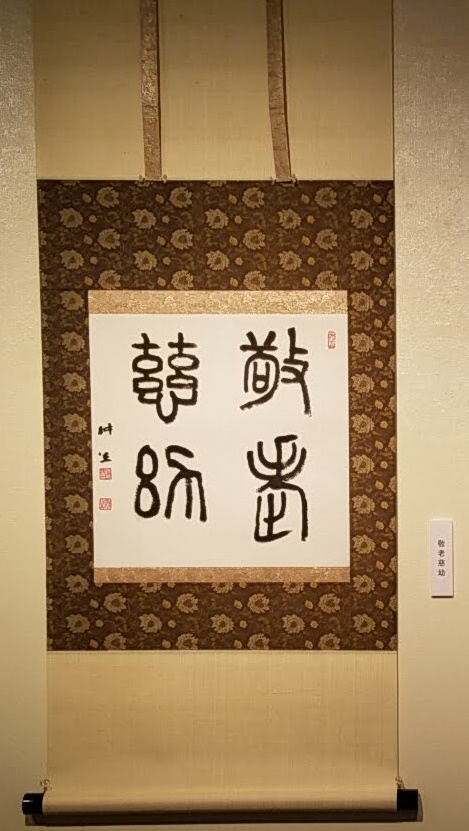 敬老
慈幼
敬老慈幼